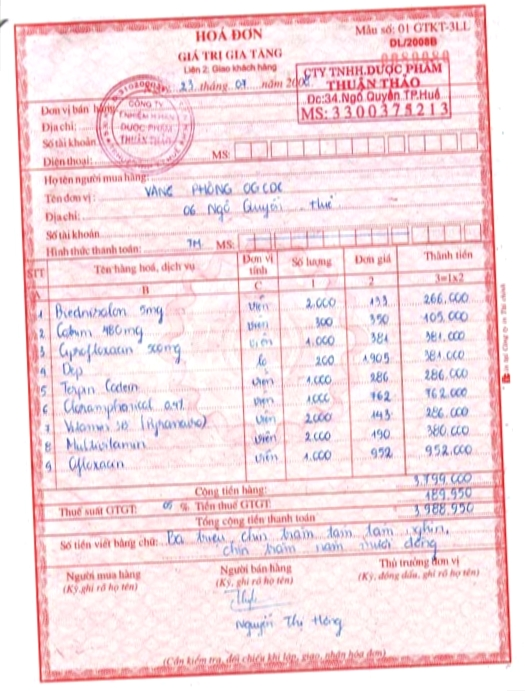 HOÁ ĐƠN
GIÁ TRỊ GIA TĂNG
Liên 2: Giao khách hàng
Mẫu số: 01 GTKT-3LL
DL/2008B
0080080
23 tháng 07 năm 2008
CTY TNHH.DƯỢC PHẨM
THUẬN THẢO
Dc:34.Ngô Quyền.TP.Huế
MS: 3300375213
CÔNG TY
DƯỢC PHẨM
THUẬN THẢO
Đơn vị bán hàng
Địa chỉ:
Số tài khoản
Điện thoại: MS:
Họ tên người mua hàng:
Tên đơn vị: VĂNG PHÒNG OGCDC
Địa chỉ: 06 Ngô Quyền Huế
Số tài khoản
Hình thức thanh toán: TM MS:
STT Tên hàng hoá, dịch vụ Đơn vị tính Số lượng Đơn giá Thành tiền
A B C 1 2 3=1x2
1 5mg viên 2.000 133 266.000
2 480mg viên 300 350 105.000
3 500mg viên 1.000 381 381.000
4 Dep lo 200 1905 381.000
5 Terpin Codein viên 1.000 286 286.000
6 viên 1000 762 762.000
7 Vitamin viên 2000 143 286.000
8 Multivitamin viên 2000 190 380.000
9 Ofloxacin viên 1.000 952 952.000
Cộng tiền hàng: 3.799.000
Thuế suất GTGT: 05 % Tiền thuế GTGT: 189.950
Tổng cộng tiền thanh toán 3.988.950
Số tiền viết bằng chữ: Ba triệu, chín trăm tám tám nghìn,
chín trăm năm mươi đồng
Người mua hàng Người bán hàng Thủ trưởng đơn vị
(Ký, ghi rõ họ tên) (Ký, ghi rõ họ tên) (Ký, đóng dấu, ghi rõ họ tên)
Nguyễn Thị Hồng
(Cần kiểm tra, đối chiếu khi lập, giao, nhận hóa đơn)